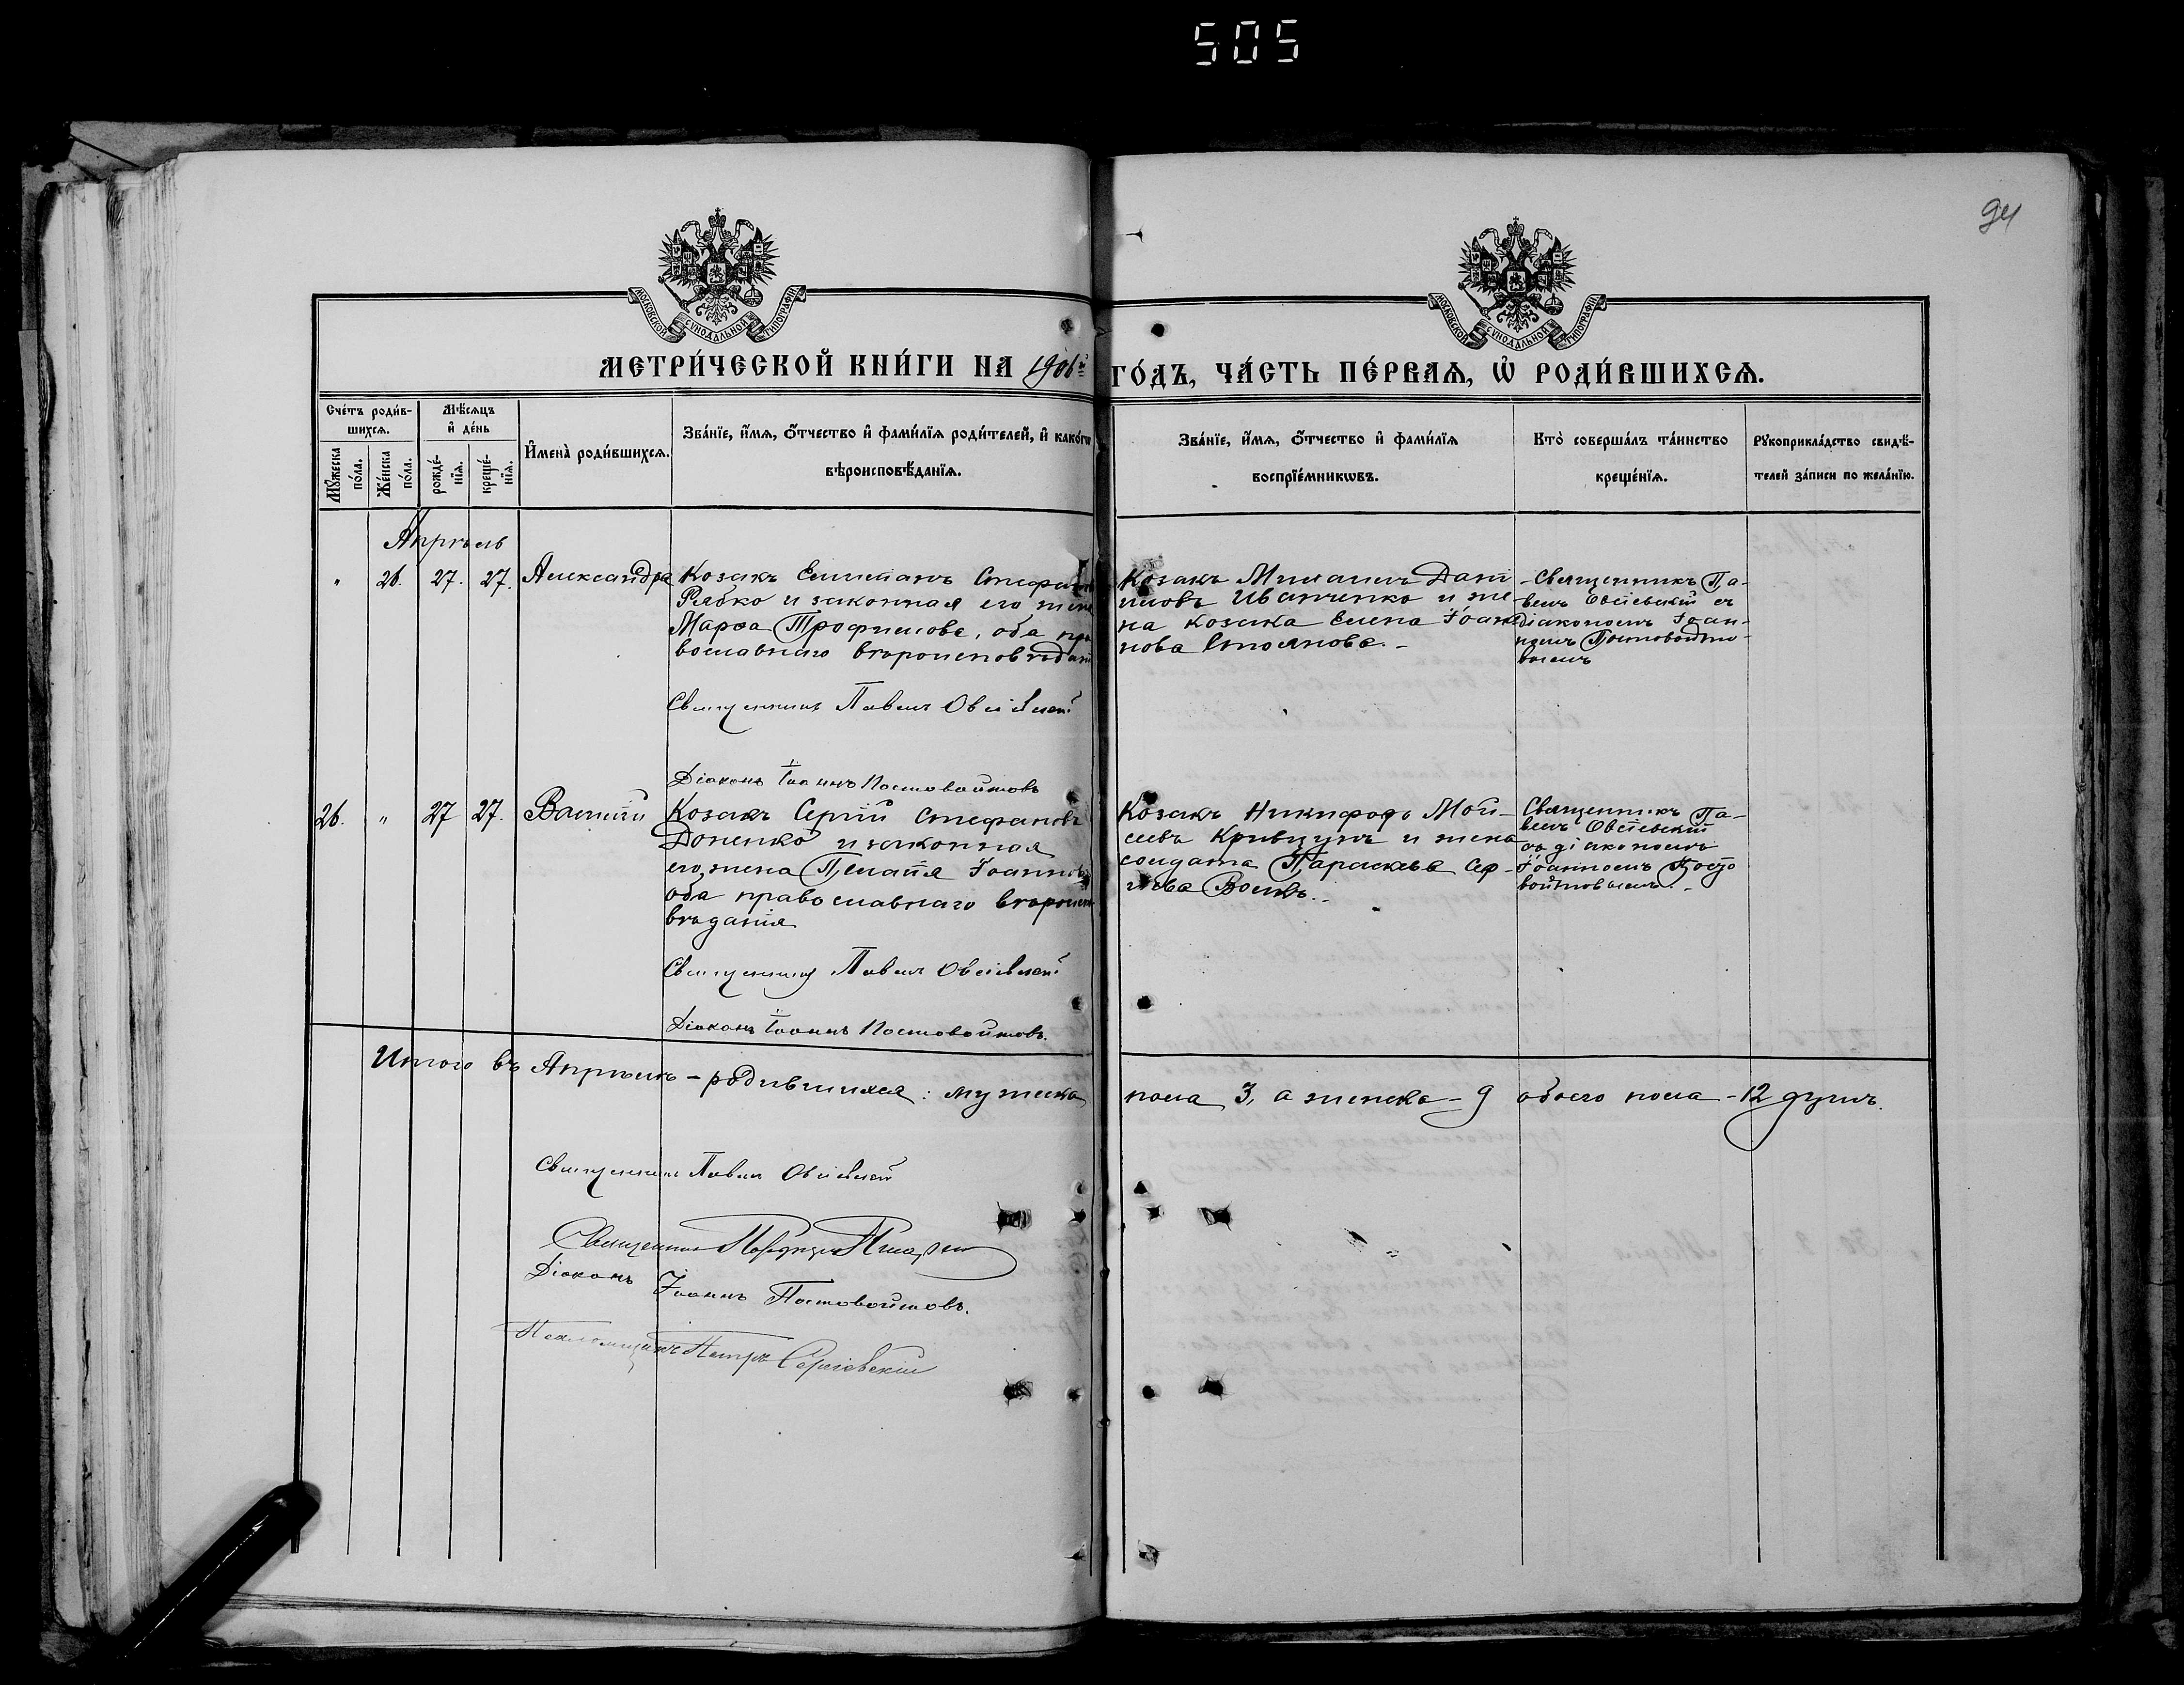 505
94
МОСКОВСКОЙ СУНОДАЛЬНОЙ ТИПОГРАФІИ
МОСКОВСКОЙ СУНОДАЛЬНОЙ ТИПОГРАФІИ
МЕТРИ́ЧЕСКОЙ КНИ́ГИ НА 1906й ГО́ДЪ, ЧА́СТЬ ПЕ́РВАѦ, Ѽ РОДИ́ВШИХСѦ.
Счéтъ роди́в-
шихсѧ.
Мꙋжеска по́ла.
Же́нска по́ла.
Мѣ́сѧцъ
и҆ де́нь
рожде́-
нїѧ.
креще́-
нїѧ.
И҆мена̀ роди́вшихсѧ.
Зва́нїе, и҆́мѧ, ѻ҆́тчество и҆ фами́лїѧ роди́телей, и҆ како́гѡ
вѣроисповѣ́данїѧ.
Зва́нїе, и҆́мѧ, ѻ҆́тчество и҆ фами́лїѧ
воспрїе́мникѡвъ.
Кто̀ соверша́лъ та́инство
креще́нїѧ.
Рꙋкоприкла́дство свидѣ́-
телей за́писи по жела́нїю.
Апрѣль
" 26. 27. 27. Александра
Козакъ Стефан
Рябко и законная его жена
Марѳа Трофимова, оба пра
вославнаго вѣроисповѣдані
Священникъ Павелъ Овсіевскій
Діаконъ Іоаннъ Постовойтовъ
Козакъ Михаилъ Дани
иловъ Иванченко и же
на козака Елена Іоан
нова Стоянова. -
- Священникъ Па-
велъ Овсіевскій съ
діакономъ Іоан-
номъ Постовойто-
вымъ
26. " 27 27. Василій
Козакъ Сергій Стефановъ
Доненко и законная
его жена Пелагія Іоаннов
оба православнаго вѣроиспо
вѣданія
Священникъ Павелъ Овсіевскій
Діаконъ Іоаннъ Постовойтовъ.
Козакъ Никифоръ Мой-
сеевъ Кривцунъ и жена
солдата Параскева Сер-
гіева
Священникъ Па-
велъ Овсіевскій
съ діакономъ
Іоанномъ Посто
войтовымъ. -
Итого въ Апрѣлѣ - родившихся: мужеска пола 3, а женска - 9 обоего пола - 12 душъ.
Священникъ Павелъ Овсіевскій
Священникъ
Діаконъ Іоаннъ Постовойтовъ.
Псаломщикъ Петръ Сергіевскій